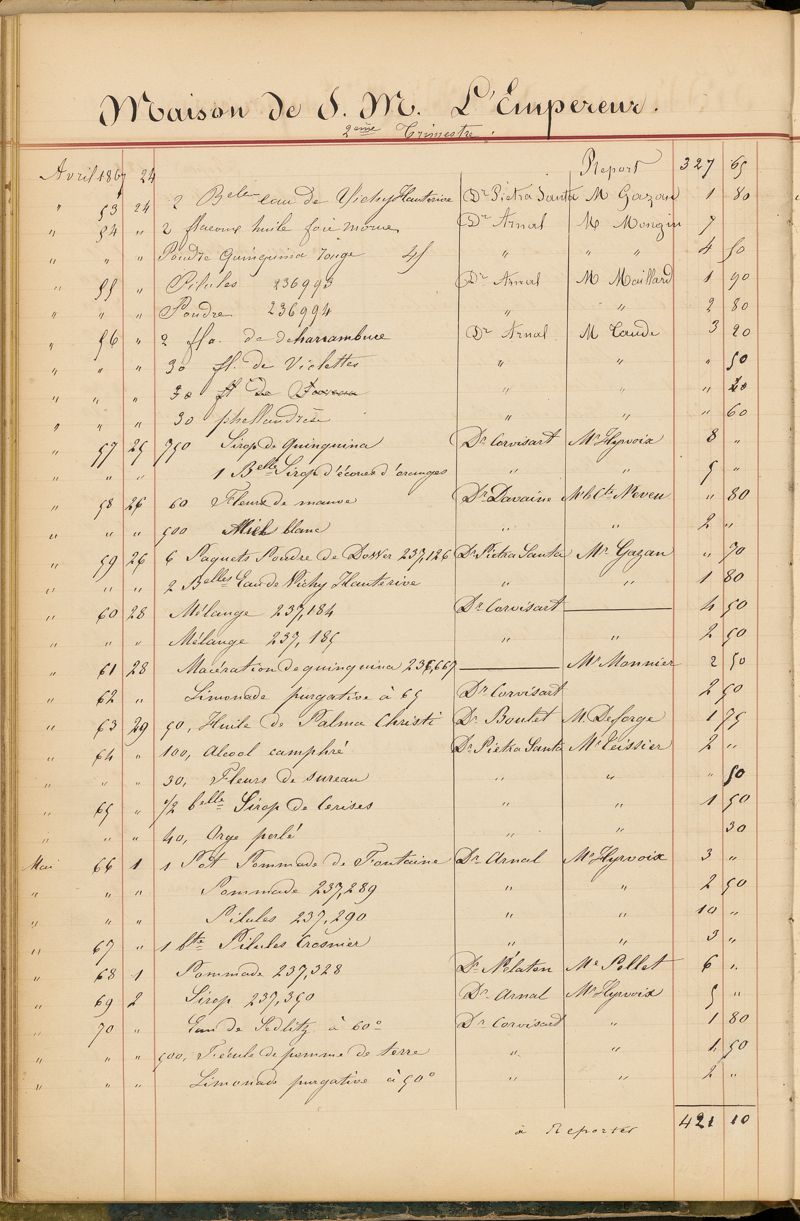 Maison de S. M. L'Empereur.
2ème Trimestre.
Avril 1867 24 Report 327 65
" 53 24 2 Belles eau de Vichy Hauterive Dr Pietra Santa M Gazan 1 80
" 54 " 2 flacons huile foie morue Dr Arnal M Mongin 7
" " " Poudre Quinquina rouge 45 " " " 4 50
" 55 " Pilules 236993 Dr Arnal M Maillard 1 90
" " " Poudre 236994 " " 2 80
" 56 " 2 flo. de deharrambure Dr Arnal M Taude 3 20
" " " 30 fl. de Violettes " " " 50
" " " 30 fl de " " " 20
" " " 30 phellandrie " " " 60
" 57 25 750 Sirop de Quinquina Dr Corvisart Mr Hyrvoix 8 "
" " " 1 Belle Sirop d'écorces d'oranges " " 5 "
" 58 26 60 Fleurs de mauve Dr Davaine Mr le Cte Neveu " 80
" " " 500 Miel blanc " " 2 "
" 59 26 6 Paquets Poudre de Dower 237,126 Dr Pietra Santa Mr Gazan " 70
" " " 2 Belles Eau de Vichy Hauterive " " 1 80
" 60 28 Mélange 237,184 Dr Corvisart 4 50
" " " Mélange 237,185 " " 2 50
" 61 28 Macération de quinquina 236,667 Mr Monnier 2 50
" 62 " Limonade purgative à 65 Dr Corvisart 2 50
" 63 29 50, Huile de Palma Christi Dr Boulet M. Deforge 1 75
" 64 " 100, Alcool camphré Dr Pietra Santa Mr Teissier 2 "
" " " 30, Fleurs de Sureau " " " 50
" 65 " 1/2 belle Sirop de Cerises " " 1 50
" " " 40, Orge perlé " " 30
Mai 66 1 1 Pot Pommade de Fontaine Dr Arnal Mr Hyrvoix 3 "
" " " Pommade 237,289 " " 2 50
" " " Pilules 237,290 " " 10 "
" 67 " 1 bte Pilules Crosnier " " 3 "
" 68 1 Pommade 237,328 Dr Nélaton Mr Pellet 6 "
" 69 2 Sirop 237,350 Dr Arnal Mr Hyrvoix 5 "
" 70 " Eau de Sedlitz à 60° Dr Corvisart " 1 80
" " " 500, Fécule de pomme de terre " " 1 50
" " " Limonade purgative à 50° " " 2 "
à Reporter 421 10